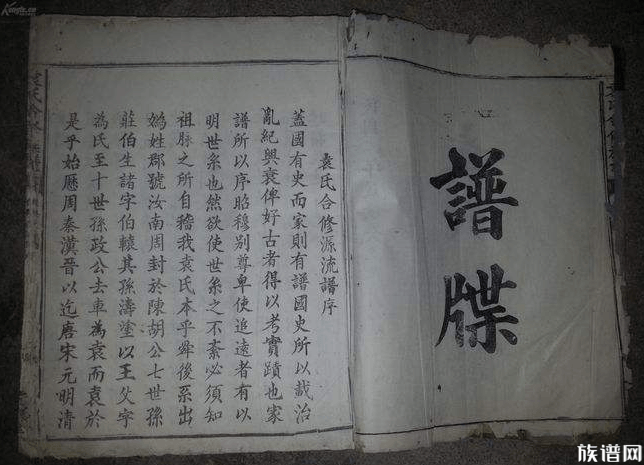 譜牒
袁氏合修源流譜序
蓋國有史而家則有譜國史所以載治
亂紀興衰俾好古者得以考實蹟也家
譜所以序昭穆别尊卑使追遠者有以
明世系也然欲使世系之不紊必須知
祖脉之所自稽我袁氏本乎舜後系出
媯姓郡號汝南周封於陳胡公七世孫
莊伯生諸字伯轅其孫濤塗以王父字
為氏至十世孫政公去車為袁而袁於
是乎始歷周秦漢晉以迄唐宋元明清
族谱网